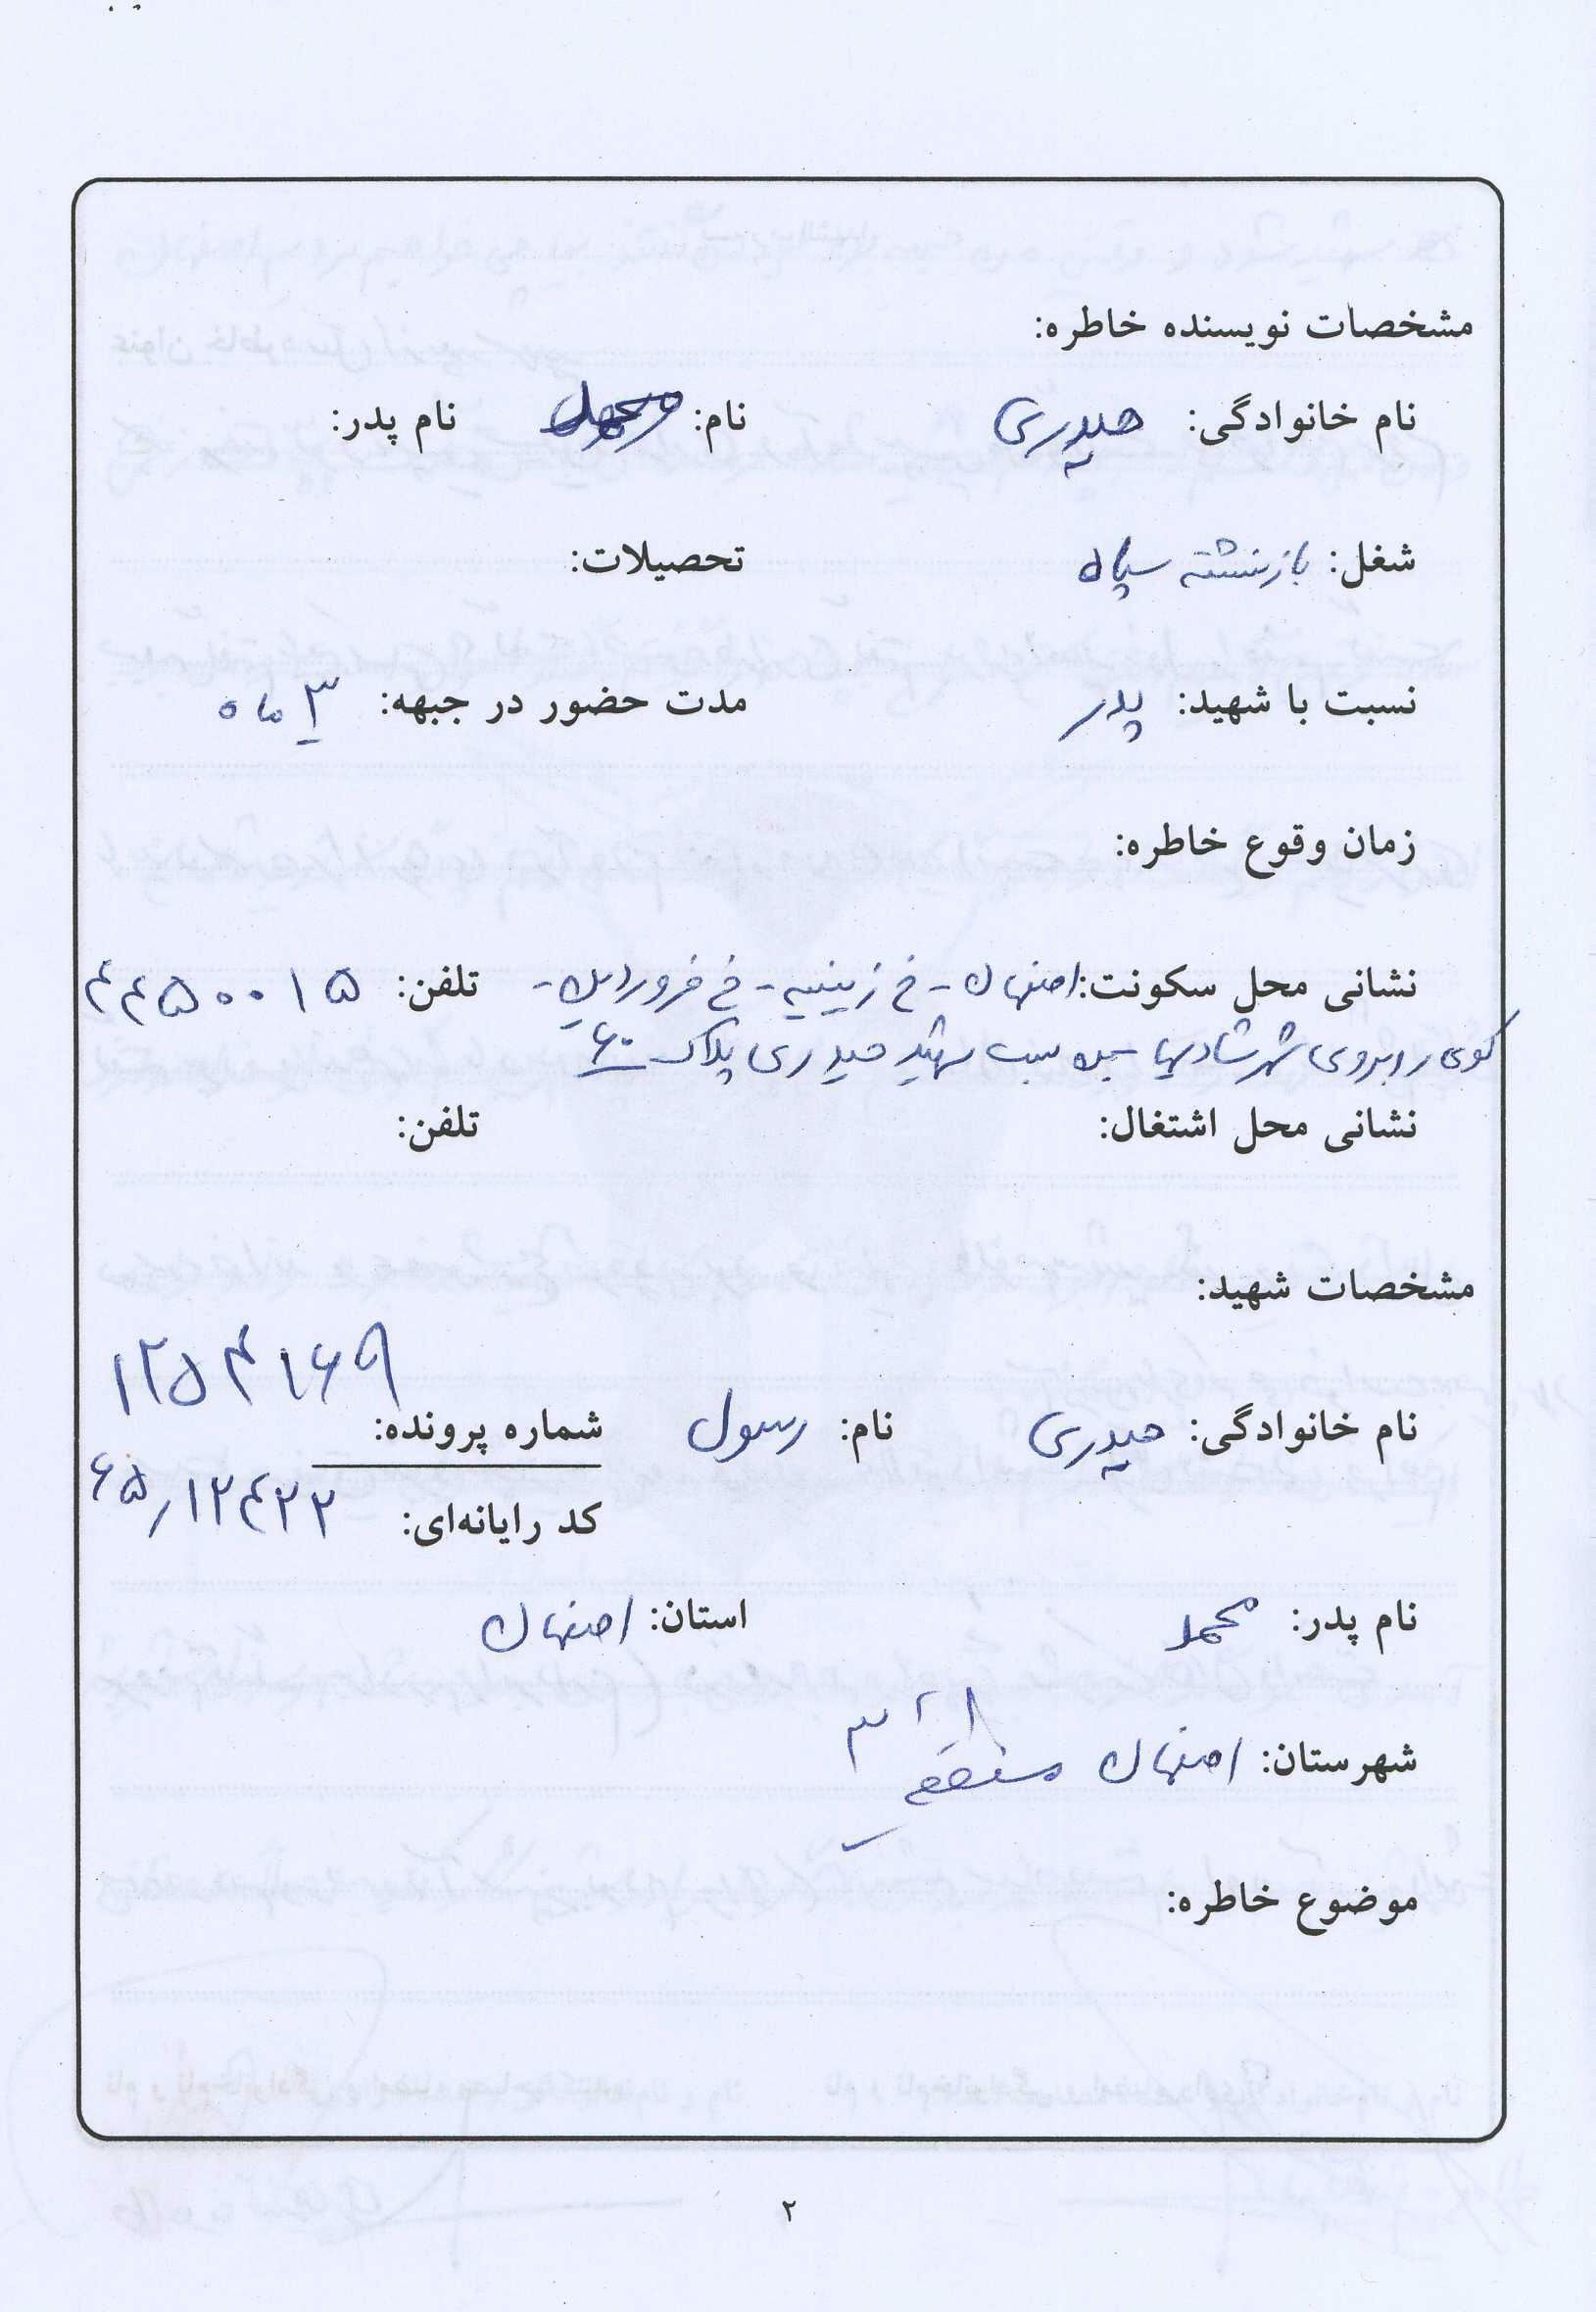 مشخصات نویسنده خاطره:
نام خانوادگی: حیدری نام: محمد نام پدر:
شغل: بازنشسته سپاه تحصیلات:
نسبت با شهید: پدر مدت حضور در جبهه: ۳ ماه
زمان وقوع خاطره:
نشانی محل سکونت: اصفهان - خ زینبیه - خ فروردین - تلفن: ۴۴۵۰۰۱۵
کوی روبروی شهر شادیها بن بست شهید حیدری پلاک ۶۰
نشانی محل اشتغال: تلفن:
مشخصات شهید:
۱۲۵۴۱۶۹
نام خانوادگی: حیدری نام: رسول شماره پرونده:
کد رایانه‌ای: ۶۵/۱۲۴۲۲
نام پدر: محمد استان: اصفهان
شهرستان: اصفهان منطقه ۳
موضوع خاطره:
۲